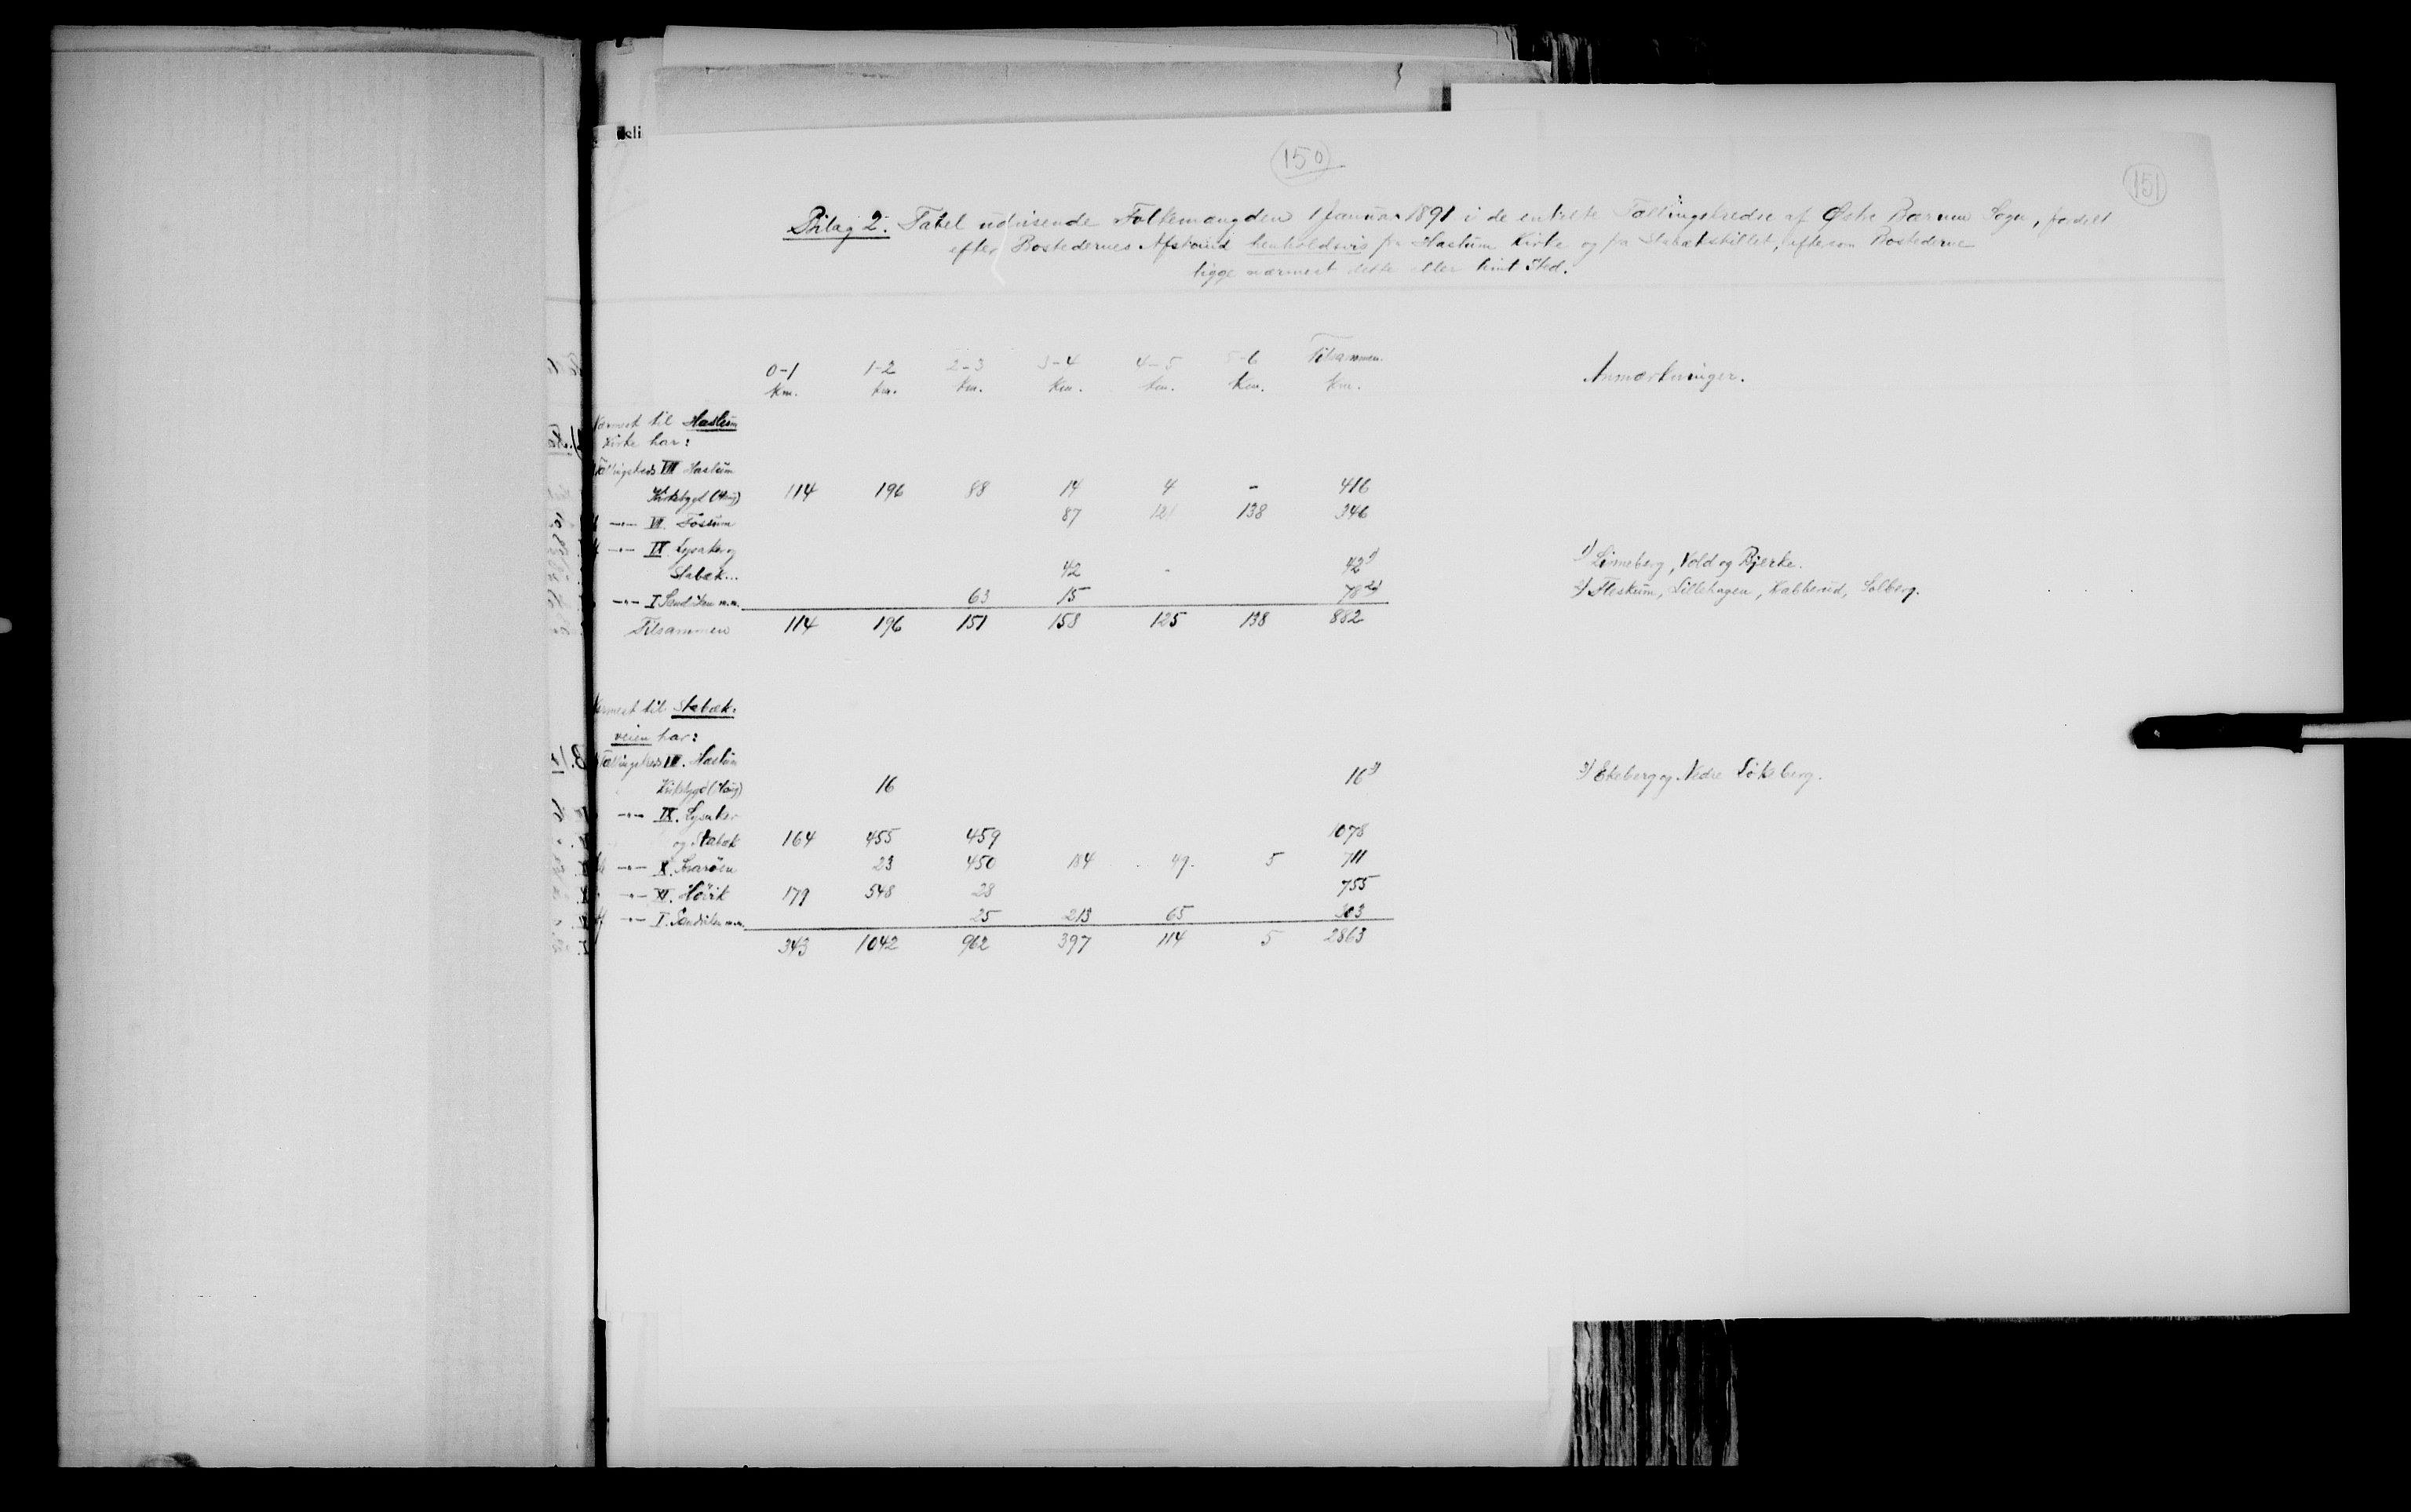 150
151
Bilag 2. Tabel udvisende Folkemængden 1 Januar 1891 i de enkelte Tællingskredse af Østre Bærum Sogn, fordelt
efter Bostedernes Afstand henholdsvis fra Haslum Kirke og fra Stabækskillet, eftersom Bostederne
ligge nærmest dette eller hint Sted.
0-1 1-2 2-3 3-4 4-5 5-6 Tilsammen.
Km. Km. Km. Km. Km. Km. Km.
Anmærkninger.
Nærmest til Haslum
Kirke har:
Tællingskreds VII Haslum
Kirkebygd (Haug) 114 196 88 14 4 - 416
—"— VI. Fossum 87 121 138 346
—"— IX Lysaker og
Stabæk... 42 - 42 1)
1) Linneberg, Vold og Bjerke.
—"— I Sandviken m.m. 63 15 78 2)
2) Fleskum, Lillehagen, Kabberud, Solberg.
Tilsammen 114 196 151 158 125 138 882
Nærmest til Stabæk-
veien har:
Tællingskreds VII. Haslum
Kirkebygd (Haug) 16 16 3)
3) Ekeberg og Nedre Løkeberg.
—"— IX. Lysaker
og Stabæk 164 455 459 1078
—"— X. Snarøen 23 450 184 49. 5 711
—"— XI. Høvik 179 548 28 755
—"— I. Sandviken m.m. 25 213 65 303
343 1042 962 397 114 5 2863